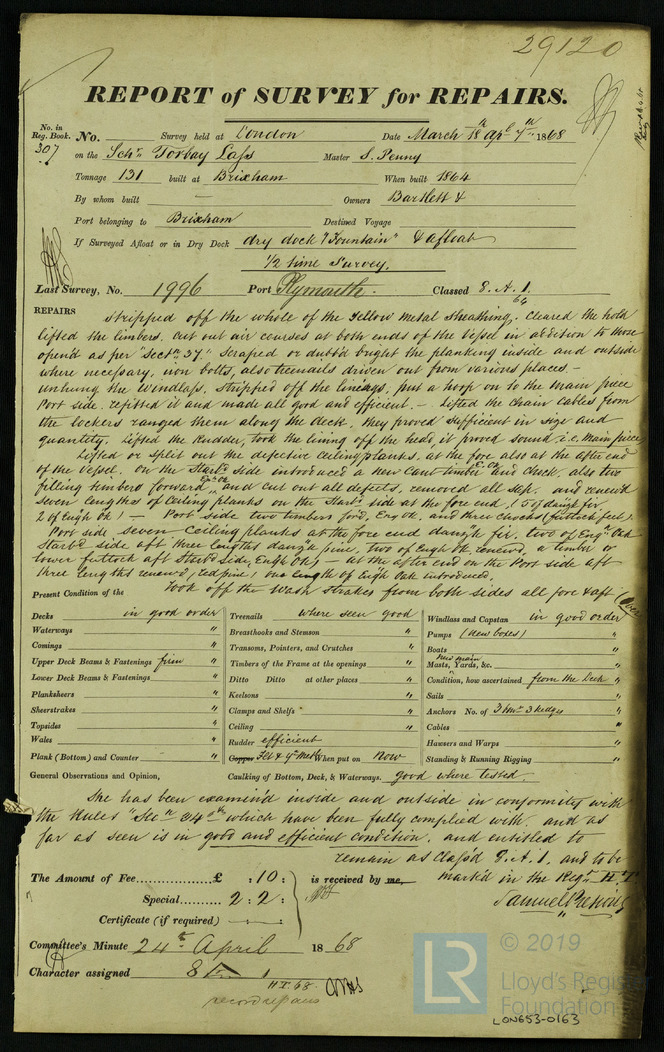 29120
REPORT of SURVEY for REPAIRS.
No. in Reg. Book. No. Survey held at London Date March 18th Apl 7th 1868
307 on the Schr Torbay Lass Master S. Penny
Tonnage 131 built at Brixham When built 1864
By whom built — Owners Bartlett &
Port belonging to Brixham Destined Voyage
If Surveyed Afloat or in Dry Dock dry dock "Fountain" & afloat
1/2 time Survey.
Last Survey, No. 1996 Port Plymouth. Classed 8. A. 1.
64
REPAIRS Stripped off the whole of the yellow metal sheathing, cleared the hold
lifted the limbers. cut out air courses at both ends of the Vessel in addition to those
open'd as per "Sectn 37." Scraped or dubb'd bright the planking inside and outside
where necessary, iron bolts, also treenails driven out from various places. —
unhung the Windlass, stripped off the linings, put a hoop on to the main piece
Port side. refitted it and made all good and efficient. — Lifted the chain cables from
the lockers ranged them along the deck, they proved sufficient in size and
quantity. Lifted the Rudder, took the lining off the head, it proved sound i.e. main piece
Lifted or split out the defective ceiling planks. at the fore also at the after end
of the Vessel. On the Starbd side introduced a new cant timber En. Ok and chock, also two
filling timbers forward, En. Ok and cut out all defects, removed all sap. and renew'd
seven lengths of ceiling planks on the Starbd side at the fore end, (5 of dangk fir
2 of Engh Ok) — Port side two timbers ford, Eng Ok, and three chocks (futtock feet).
Port side seven ceiling planks at the fore end dangk fir. two of Engh Oak
Starbd side aft three lengths dangk pine, two of Engh Ok renew'd, a timber or
lower futtock aft Starbd side, Engh Ok, — at the after end on the Port side aft
three lengths renew'd, red pine, one length of Engh Oak introduced.
Took off the wash strakes from both sides all fore & aft (Over
Present Condition of the
Decks in good order
Waterways "
Comings "
Upper Deck Beams & Fastenings firm "
Lower Deck Beams & Fastenings "
Planksheers "
Sheerstrakes "
Topsides "
Wales "
Plank (Bottom) and Counter "
Treenails where seen good
Breasthooks and Stemson "
Transoms, Pointers, and Crutches "
Timbers of the Frame at the openings "
Ditto Ditto at other places "
Keelsons "
Clamps and Shelfs "
Ceiling "
Rudder efficient
Copper Felt & Y. Metl When put on Now
Windlass and Capstan in good order
Pumps (new boxes) "
Boats "
new main
Masts, Yards, &c. "
Condition, how ascertained from the Deck "
Sails "
Anchors No. of 3 bowr 3 kedges "
Cables "
Hawsers and Warps "
Standing & Running Rigging "
General Observations and Opinion, Caulking of Bottom, Deck, & Waterways. good where tested.
She has been examin'd inside and outside in conformity with
the Rules "Secn 34" which have been fully complied with. and as
far as seen is in good and efficient condition. and entitled to
remain as class'd 8. A. 1, and to be
mark'd in the Regr H.T.
The Amount of Fee £ : 10 : is received by me,
Special 2 : 2 :
Certificate (if required)
Samuel
Committee's Minute 24th April 1868
Character assigned 8 A 1
H T. 68.
record repairs
LR © 2019
Lloyd's Register
Foundation
LON653-0163